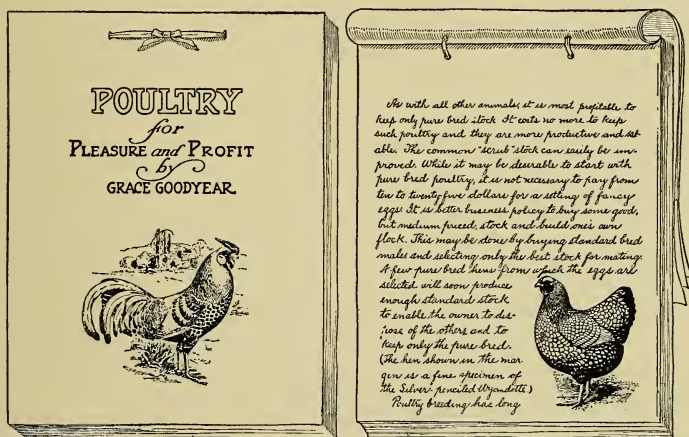 POULTRY
for
PLEASURE and PROFIT
by
GRACE GOODYEAR
As with all other animals, it is most profitable to
keep only pure bred stock It costs no more to keep
such poultry and they are more productive and sal-
able. The common "scrub" stock can easily be im-
proved. While it may be desirable to start with
pure bred poultry, it is not necessary to pay from
ten to twenty five dollars for a setting of fancy
eggs. It is better business policy to buy some good,
but medium priced, stock and build one's own
flock. This may be done by buying standard bred
males and selecting only the best stock for mating.
A few pure bred hens from which the eggs are
selected will soon produce
enough standard stock
to enable the owner to dis-
pose of the others and to
keep only the pure bred.
(The hen shown in the mar
gin is a fine specimen of
the Silver-penciled Wyandotte)
Poultry breeding has long